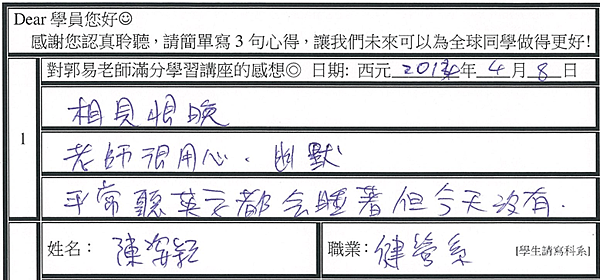 Dear 學員您好☺
感謝您認真聆聽，請簡單寫3句心得，讓我們未來可以為全球同學做得更好!
對郭易老師滿分學習講座的感想◎ 日期: 西元 2014年 4 月 8 日
1
相見恨晚
老師很用心、幽默
平常聽英文都會睡著但今天沒有.
姓名： 陳姿穎 職業： 健營系 [學生請寫科系]